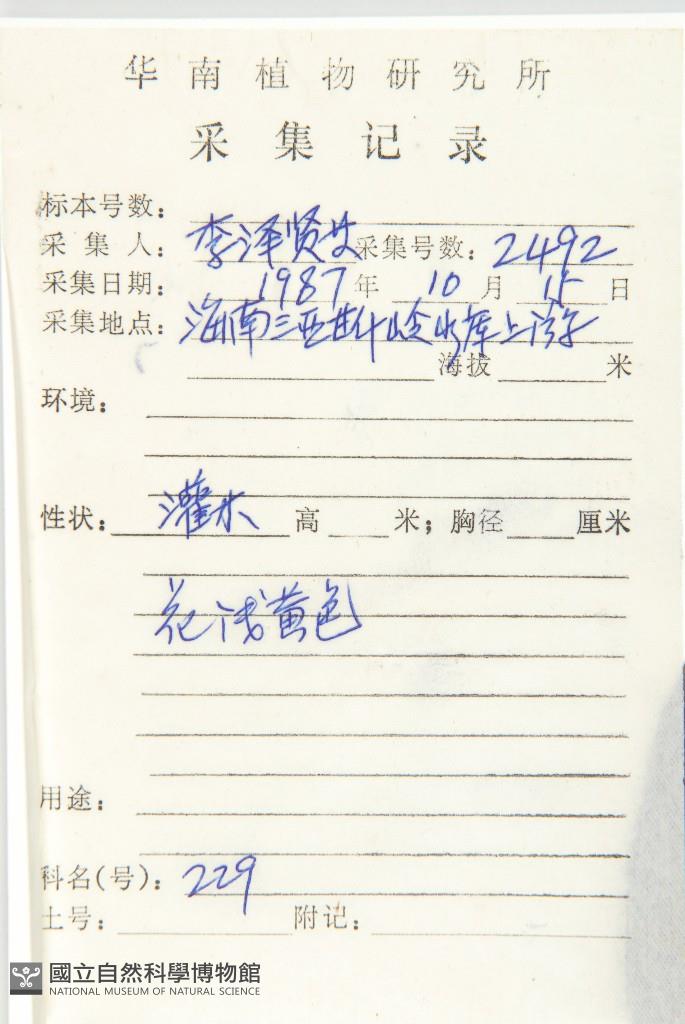 华南植物研究所
采集记录
标本号数：
采集人：李泽贤 采集号数：2492
采集日期：1987年10月15日
采集地点：海南三亚甘什岭水库上游
海拔 米
环境：
性状：灌木 高 米；胸径 厘米
花浅黄色
用途：
科名(号)：229
土号： 附记：
國立自然科學博物館
NATIONAL MUSEUM OF NATURAL SCIENCE